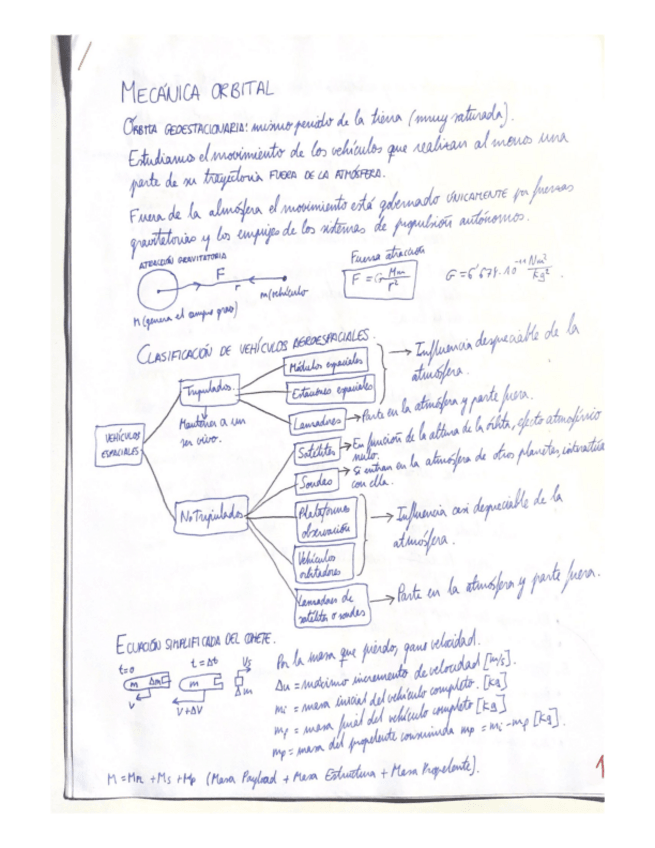 MECÁNICA ORBITAL
ÓRBITA GEOESTACIONARIA: mismo periodo de la tierra (muy saturada).
Estudiamos el movimiento de los vehículos que realizan al menos una
parte de su trayectoria FUERA DE LA ATMÓSFERA.
Fuera de la atmósfera el movimiento está gobernado ÚNICAMENTE por fuerzas
gravitatorias y los empujes de los sistemas de propulsión autónomos.
ATRACCIÓN GRAVITATORIA
F
r
m(vehículo
M (genera el campo grav)
Fuerza atracción
F = G Mm/r²
G = 6'674·10⁻¹¹ Nm²/kg².
CLASIFICACIÓN DE VEHÍCULOS AEROESPACIALES.
VEHÍCULOS
ESPACIALES
Tripulados.
Mantener a un
ser vivo.
Módulos espaciales
Estaciones espaciales
→ Influencia despreciable de la
atmósfera.
Lanzadores → Parte en la atmósfera y parte fuera.
Satélites → En función de la altura de la órbita, efecto atmosférico
nulo.
Sondas → Si entran en la atmósfera de otros planetas, interactúa
con ella.
No Tripulados
Plataformas
observación
Vehículos
orbitadores
→ Influencia casi despreciable de la
atmósfera.
Lanzadores de
satélites o sondas
→ Parte en la atmósfera y parte fuera.
ECUACIÓN SIMPLIFICADA DEL COHETE.
t=0
m Δm
V
t = Δt
m
V+ΔV
Vs
Δm
Por la masa que pierdo, gano velocidad.
Δu = máximo incremento de velocidad [m/s].
mi = masa inicial del vehículo completo. [kg]
mf = masa final del vehículo completo [kg]
mp = masa del propelente consumida mp = mi - mf [kg].
M = Mn + Ms + Mp (Masa Payload + Masa Estructura + Masa Propelente).
1